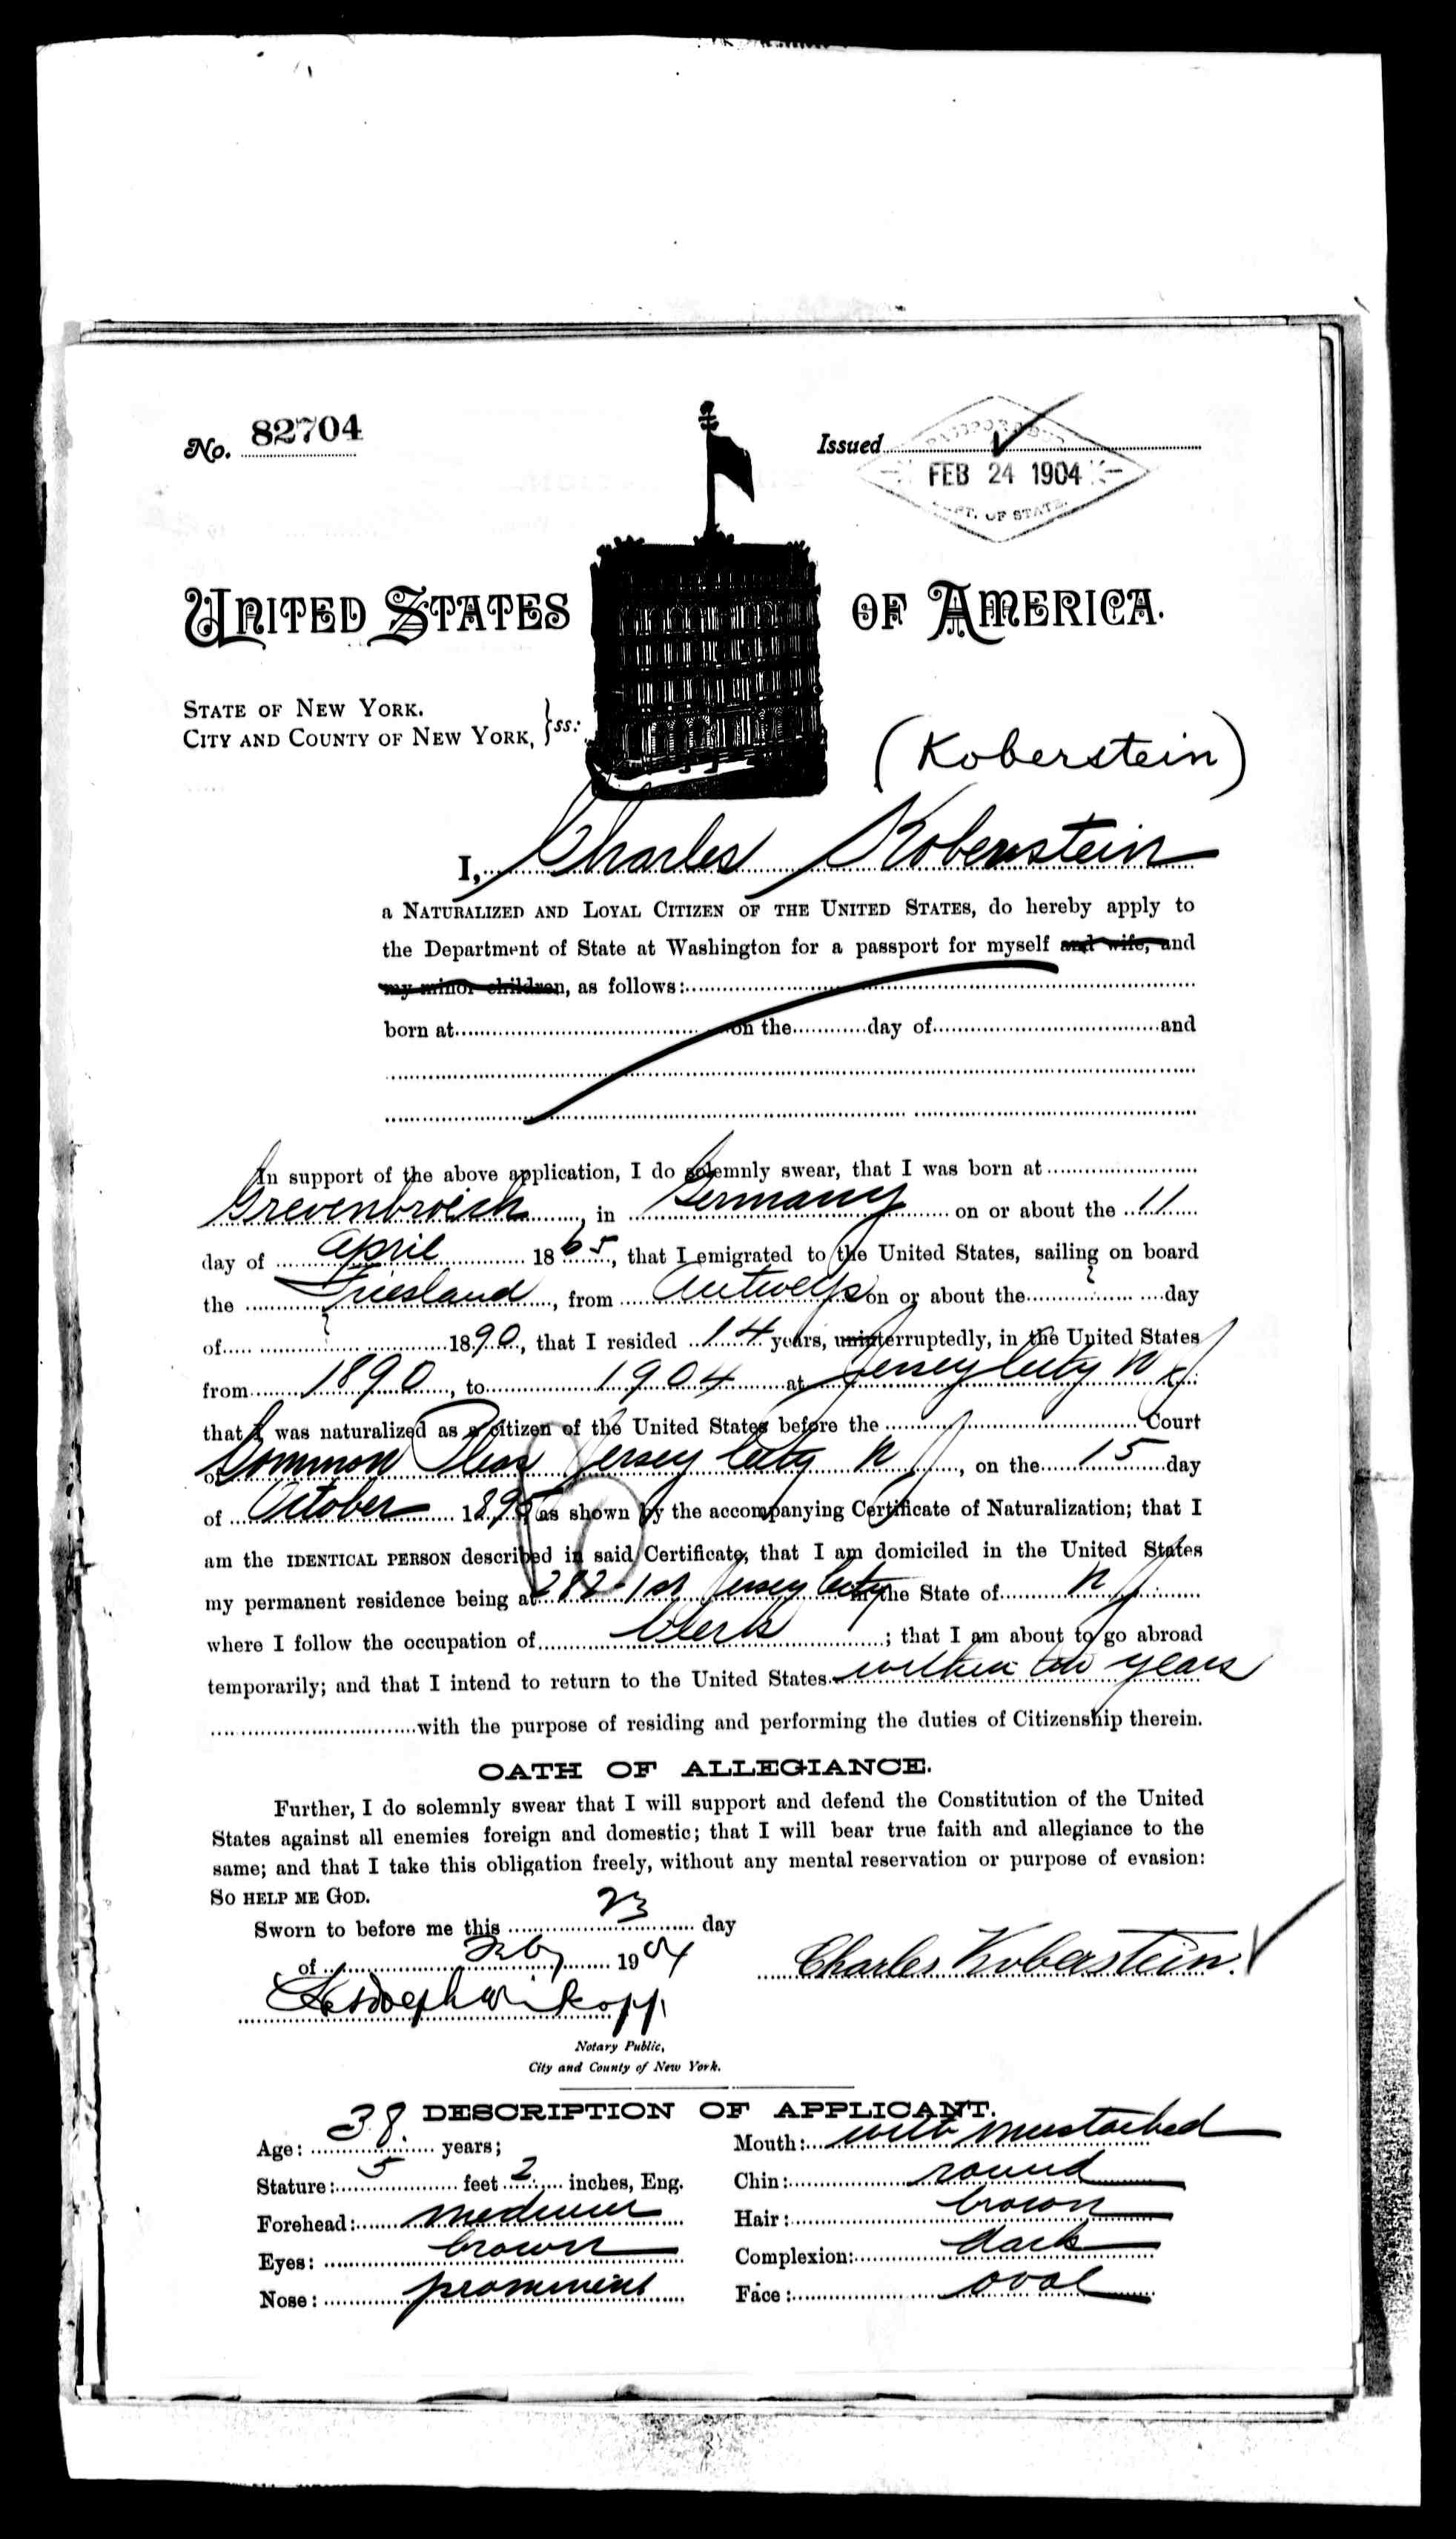 No. 82704
Issued
PASSPORT BUREAU
FEB 24 1904
DEPT. OF STATE.
UNITED STATES OF AMERICA.
STATE OF NEW YORK.
CITY AND COUNTY OF NEW YORK, } ss:
(Koberstein)
I, Charles Koberstein
a NATURALIZED AND LOYAL CITIZEN OF THE UNITED STATES, do hereby apply to
the Department of State at Washington for a passport for myself and wife, and
my minor children, as follows:
born at on the day of and
In support of the above application, I do solemnly swear, that I was born at
Grevenbroich, in Germany on or about the 11
day of April 1865, that I emigrated to the United States, sailing on board
the Friesland, from Antwerp on or about the ? day
of ? 1890, that I resided 14 years, uninterruptedly, in the United States
from 1890, to 1904 at Jersey City N J
that I was naturalized as a citizen of the United States before the Court
of Common Pleas Jersey City N J, on the 15 day
of October 1895, as shown by the accompanying Certificate of Naturalization; that I
am the IDENTICAL PERSON described in said Certificate, that I am domiciled in the United States
my permanent residence being at 282-1st Jersey City in the State of N J
where I follow the occupation of Clerk; that I am about to go abroad
temporarily; and that I intend to return to the United States within two years
with the purpose of residing and performing the duties of Citizenship therein.
OATH OF ALLEGIANCE.
Further, I do solemnly swear that I will support and defend the Constitution of the United
States against all enemies foreign and domestic; that I will bear true faith and allegiance to the
same; and that I take this obligation freely, without any mental reservation or purpose of evasion:
SO HELP ME GOD.
Sworn to before me this 23 day
of Feby 1904
Charles Koberstein.
Notary Public,
City and County of New York.
DESCRIPTION OF APPLICANT.
Age: 38 years;
Mouth: with mustached
Stature: 5 feet 2 inches, Eng.
Chin: round
Forehead: medium
Hair: brown
Eyes: brown
Complexion: dark
Nose: prominent
Face: oval